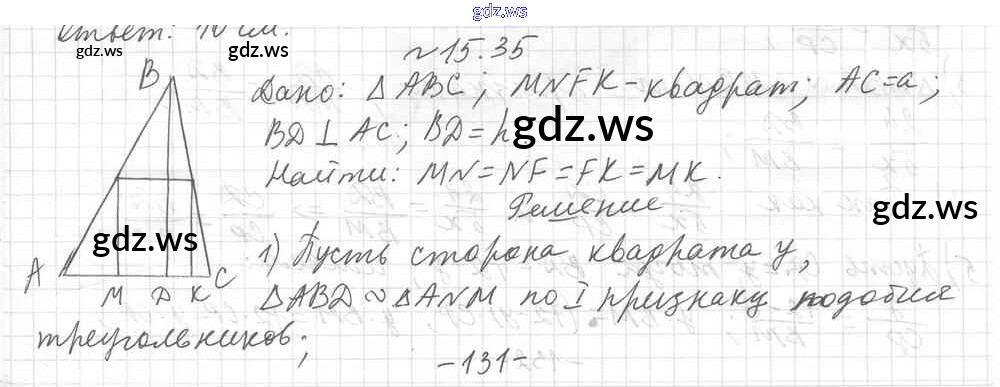 gdz.ws
Ответ: 10 см.
gdz.ws
gdz.ws
№15.35
B
Дано: △ABC; MNFK-квадрат; AC=a;
BD⊥AC; BD=h
gdz.ws
Найти: MN=NF=FK=MK.
Решение
gdz.ws
gdz.ws
1) Пусть сторона квадрата y,
A
C
M D K
△ABD∾△ANM по I признаку подобия
треугольников;
-131-